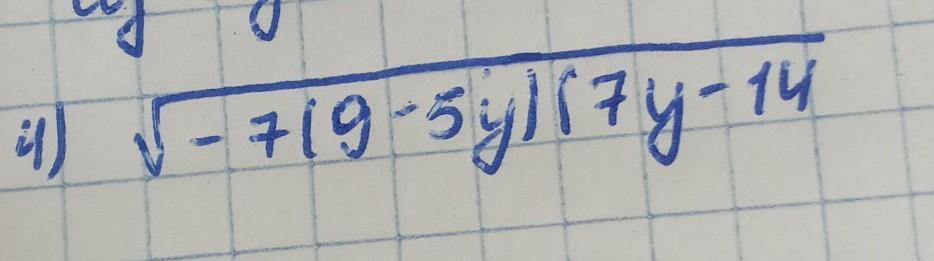 4) √-7(9-5y)(7y-14